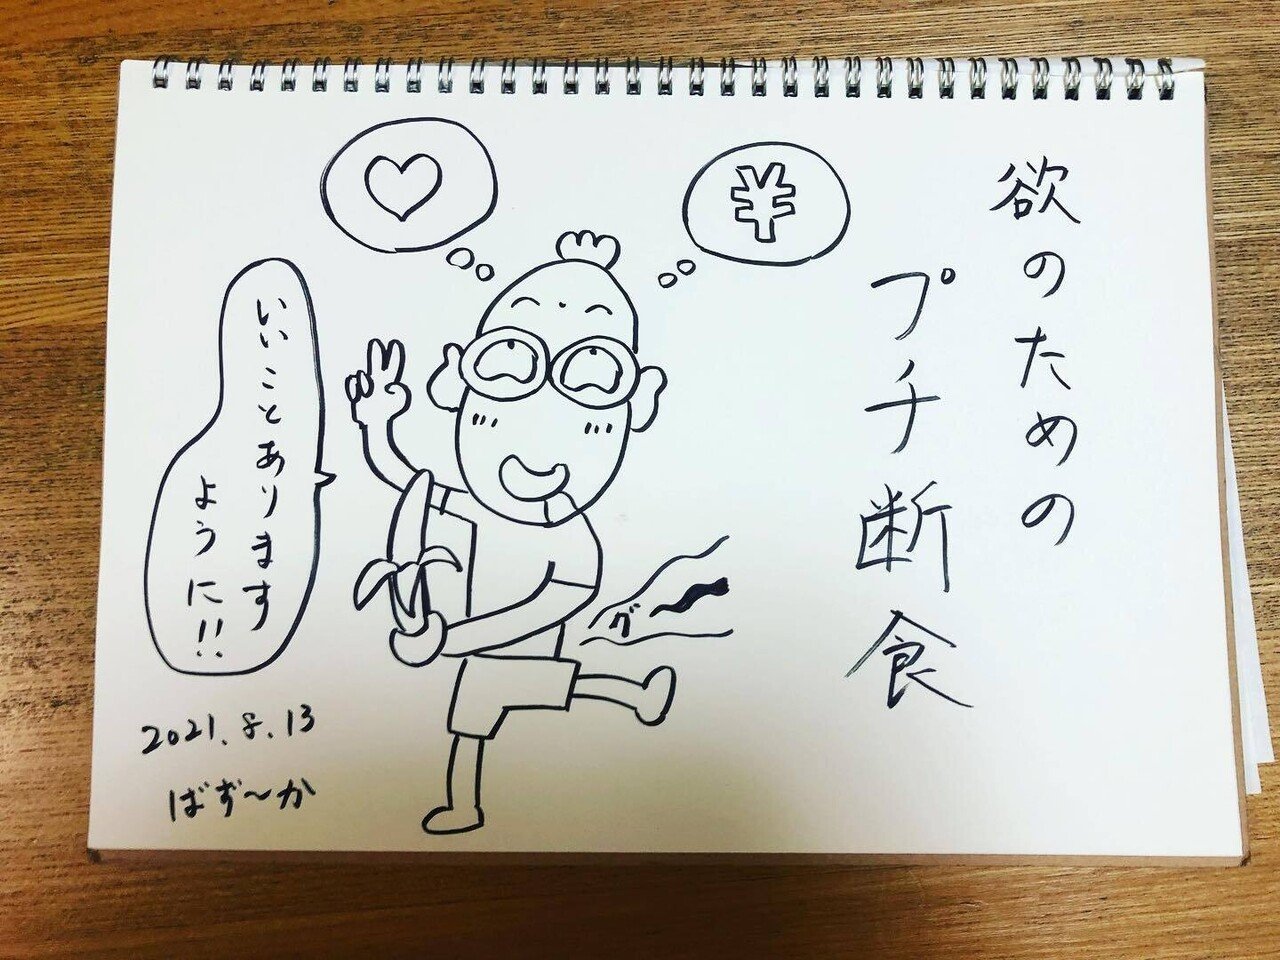 欲のための
プチ断食
¥
いいことあります
ように!!
グ〜
2021.8.13
ばず〜か